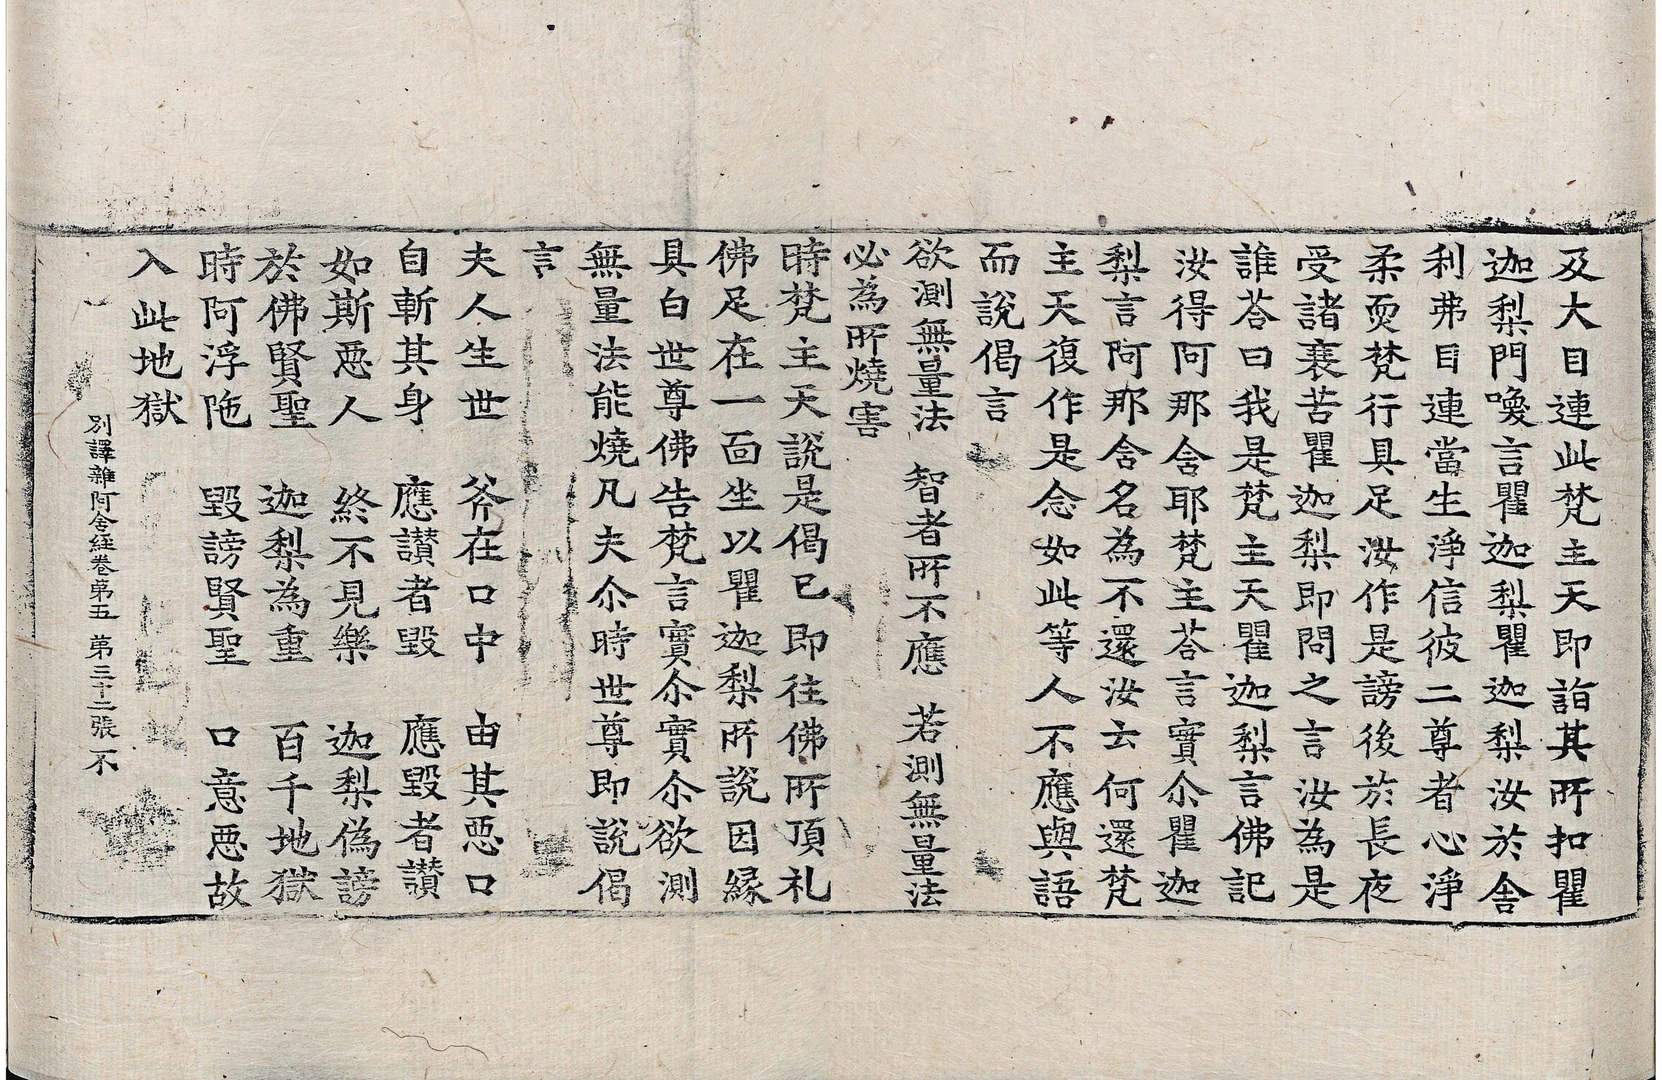 及大目連此梵主天即詣其所扣瞿
迦梨門喚言瞿迦梨瞿迦梨汝於舍
利弗目連當生淨信彼二尊者心淨
柔耎梵行具足汝作是謗後於長夜
受諸衰苦瞿迦梨即問之言汝為是
誰荅曰我是梵主天瞿迦梨言佛記
汝得阿那含耶梵主荅言實尒瞿迦
梨言阿那含名為不還汝云何還梵
主天復作是念如此等人不應與語
而說偈言
欲測無量法　智者所不應　若測無量法
必為所燒害
時梵主天說是偈已即往佛所頂礼
佛足在一面坐以瞿迦梨所說因緣
具白世尊佛告梵言實尒實尒欲測
無量法能燒凡夫尒時世尊即說偈
言
夫人生世　斧在口中　由其惡口
自斬其身　應讃者毀　應毀者讃
如斯惡人　終不見樂　迦梨偽謗
於佛賢聖　迦梨為重　百千地獄
時阿浮陁　毀謗賢聖　口意惡故
入此地獄
別譯雜阿含經卷第五　第三十二張　不